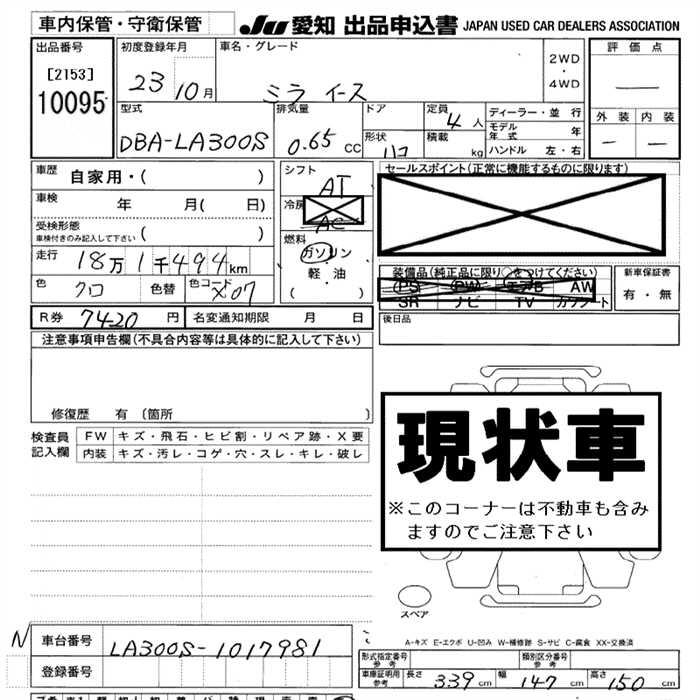 車内保管・守衛保管
JU 愛知 出品申込書 JAPAN USED CAR DEALERS ASSOCIATION
出品番号
[2153]
10095
初度登録年月
23 10月
車名・グレード
ミラ イース
2WD
・
4WD
評価点
外装 内装
型式
DBA-LA300S
排気量
0.65 CC
ドア
形状 ハコ
定員 4人
積載 kg
ディーラー・並行
モデル年式 年
ハンドル 左・右
車歴 自家用・( )
車検 年 月( 日)
受検形態
車検付きのみ記入して下さい ( )
走行 18万1千494km
色 クロ 色替 色コード X07
シフト AT
冷房 AC
燃料
ガソリン
軽・油
( )
セールスポイント(正常に機能するものに限ります)
装備品(純正品に限り○をつけてください)
PS PW エアB AW
SR ナビ TV カワシート
新車保証書
有・無
R券 7420 円 名変通知期限 月 日
後日品
注意事項申告欄(不具合内容等は具体的に記入して下さい)
修復歴 有 [箇所 ]
検査員記入欄
FW キズ・飛石・ヒビ割・リペア跡・X要
内装 キズ・汚レ・コゲ・穴・スレ・キレ・破レ
現状車
※このコーナーは不動車も含み
ますのでご注意下さい
スペア
A-キズ E-エクボ U-凹み W-補修跡 S-サビ C-腐食 XX-交換済
N
車台番号 LA300S-1017981
登録番号
形式指定番号 参考
類別区分番号 参考
車庫証明用 参考 長さ 339 cm 幅 147 cm 高さ 150 cm